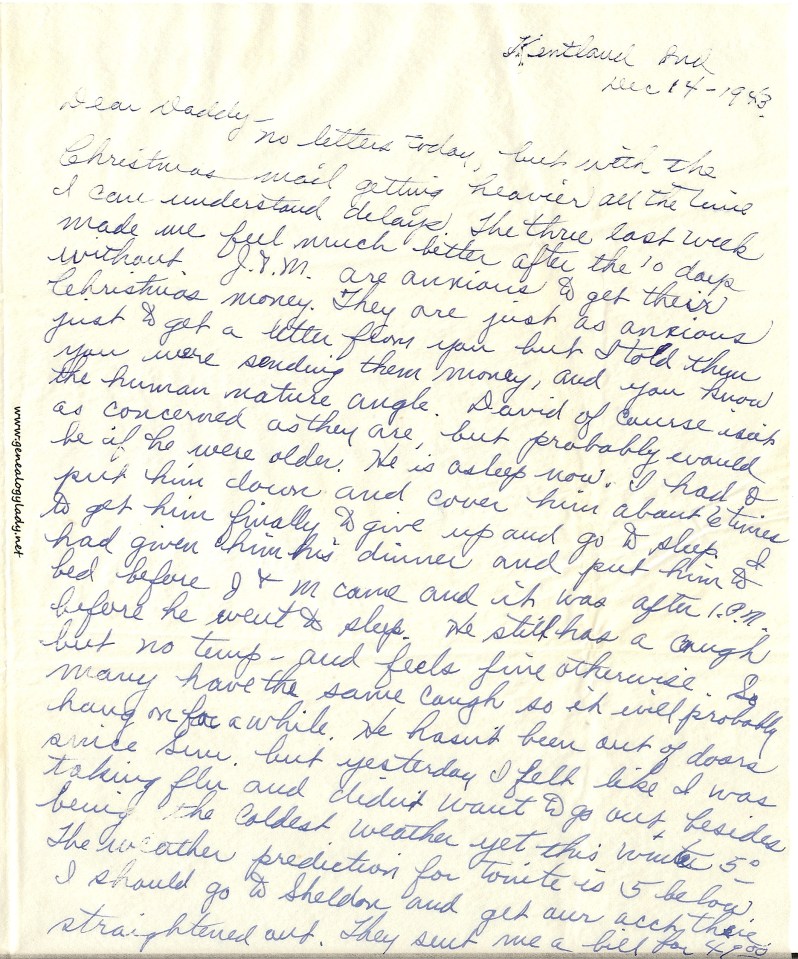 Kentland Ind
Dec 14-1943.
Dear Daddy-
No letters today, but with the
Christmas mail getting heavier all the time
I can understand delays. The three last week
made me feel much better after the 10 days
without. J. & M. are anxious to get their
Christmas money. They are just as anxious
just to get a letter from you but I told them
you were sending them money, and you know
the human nature angle. David of course isn't
as concerned as they are, but probably would
be if he were older. He is asleep now. I had to
put him down and cover him about 6 times
to get him finally to give up and go to sleep. I
had given him his dinner and put him to
bed before J & M came and it was after 1. P.M.
before he went to sleep. He still has a cough
but no temp - and feels fine otherwise. So
many have the same cough so it will probably
hang on for a while. He hasn't been out of doors
since Sun. but yesterday I felt like I was
taking flu and didn't want to go out besides
being the coldest weather yet this winter 5°
The weather prediction for tonite is 5 below.
I should go to Sheldon and get our acct there
straightened out. They sent me a bill for 49.00
www.genealogylady.net